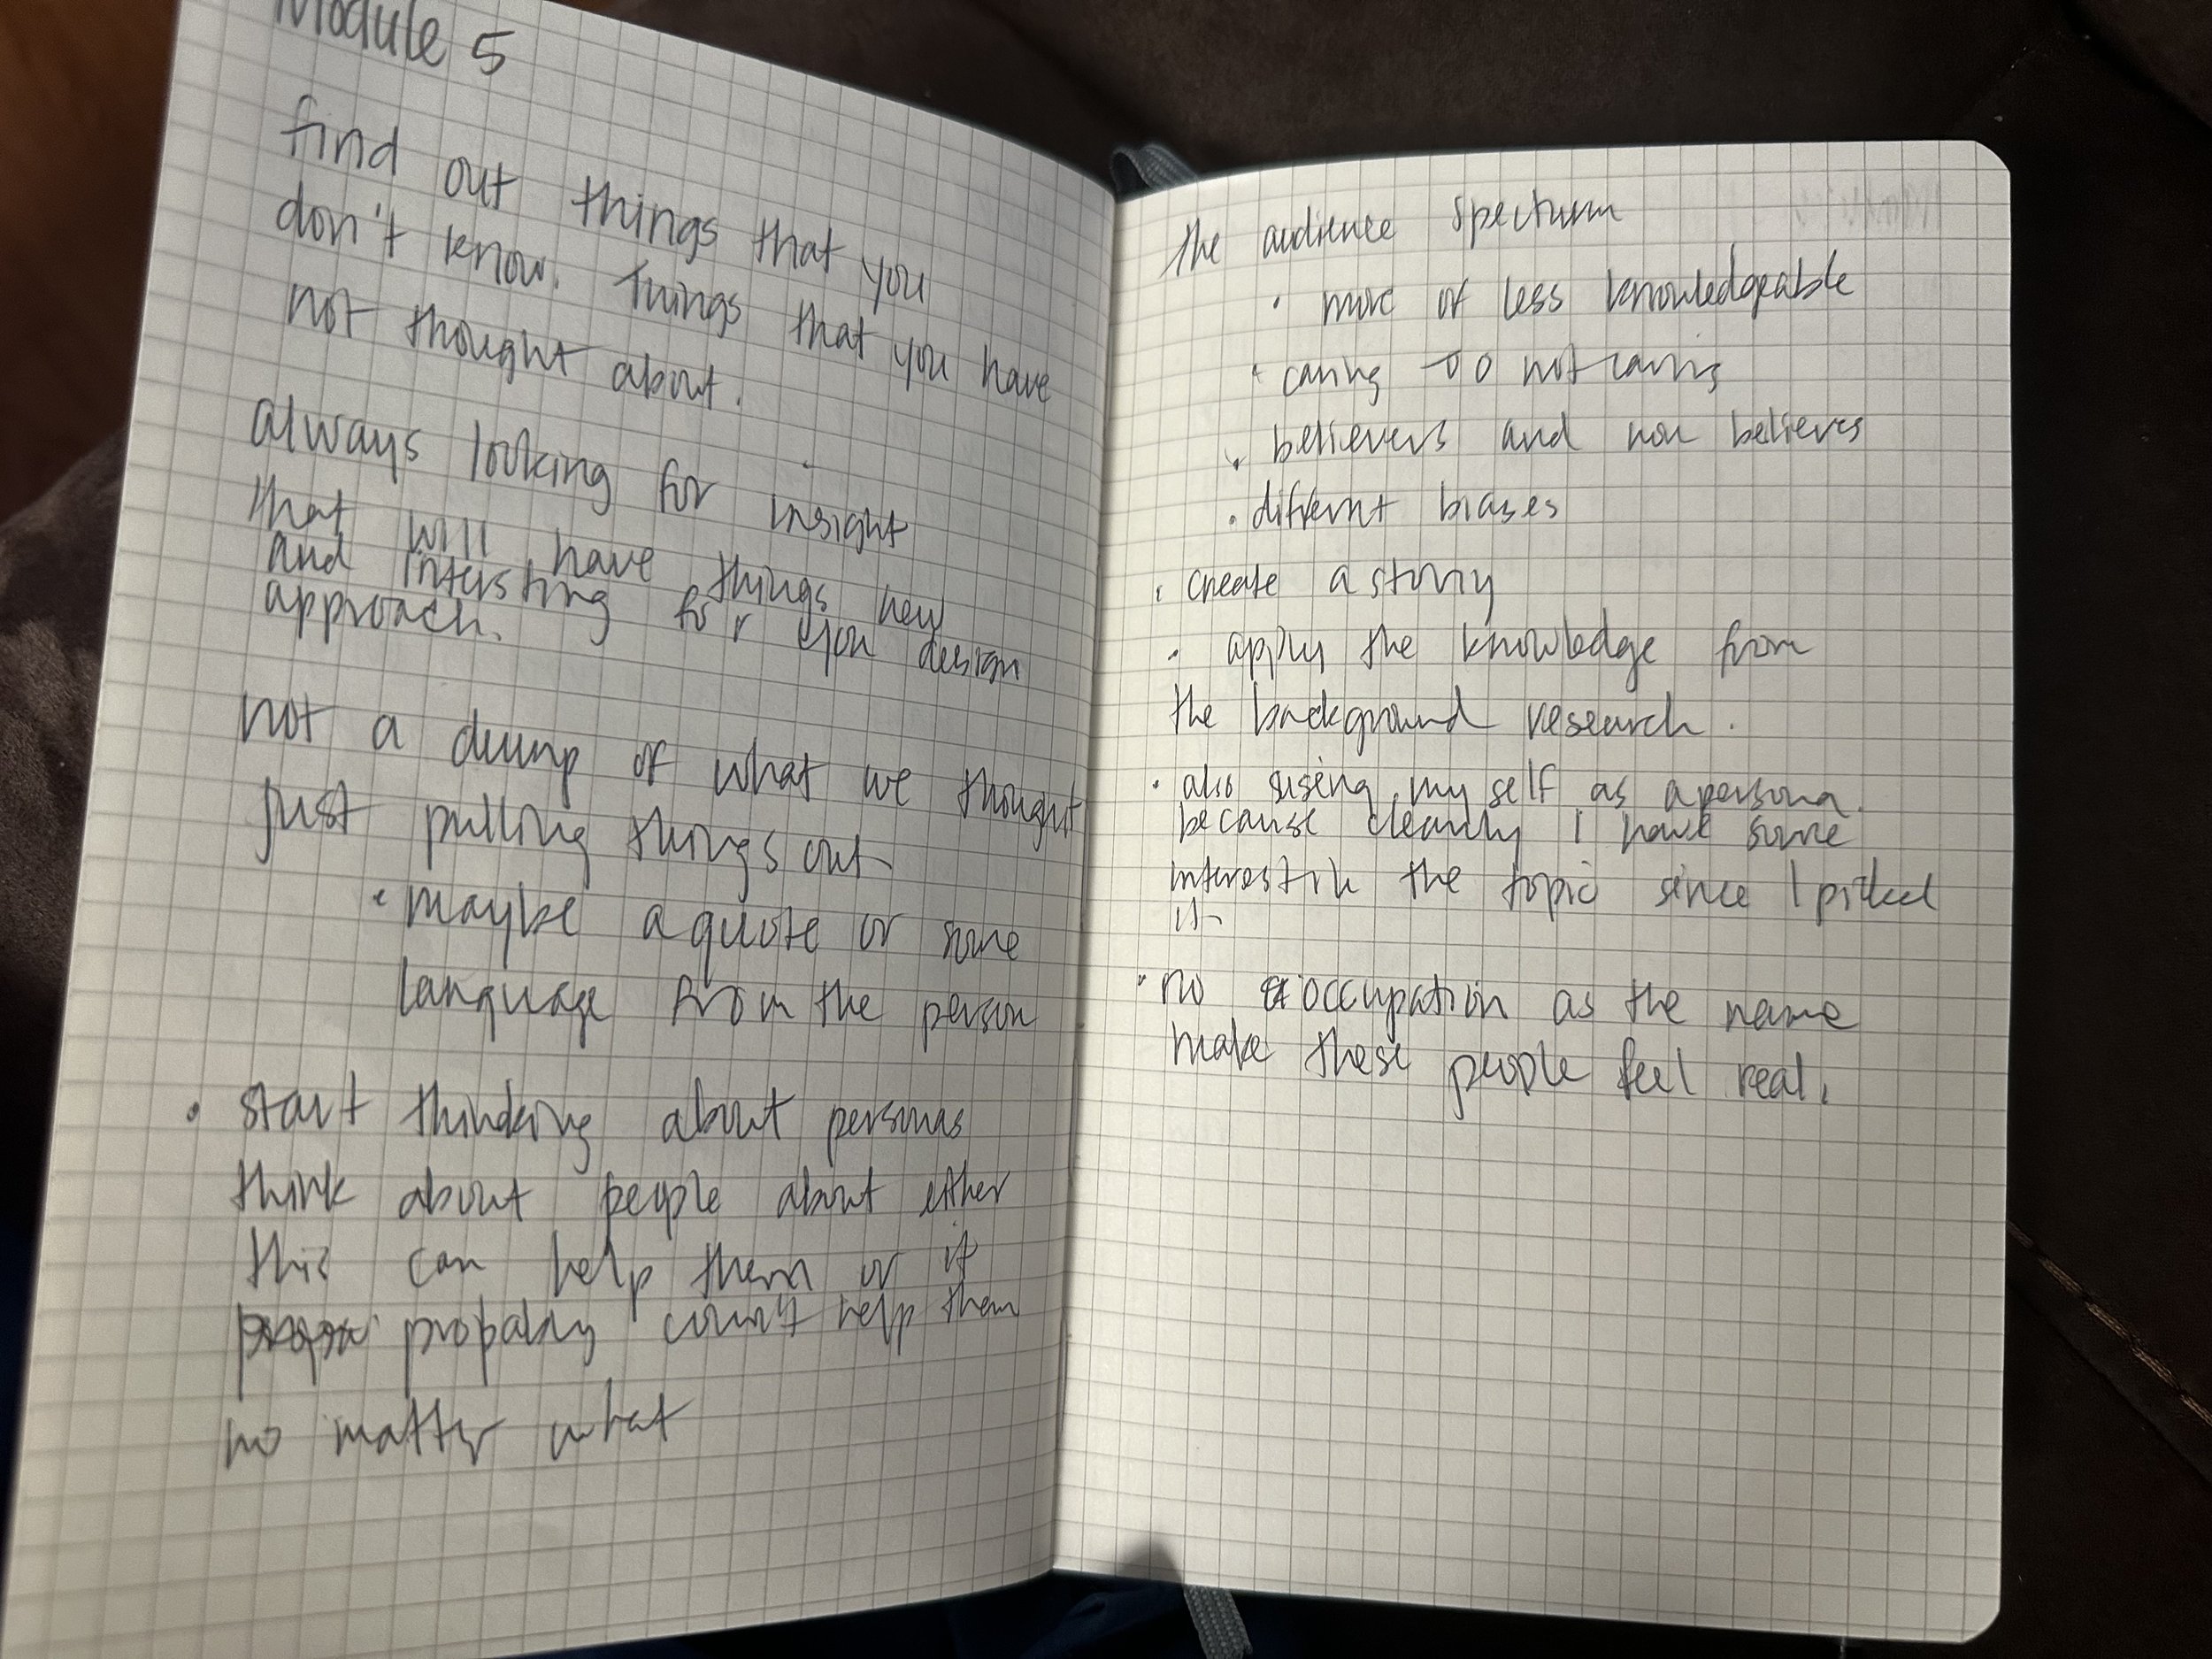 Module 5
find out things that you
don't know. Things that you have
not thought about.
always looking for insight
that will have things new
and intersting for you design
approach.
not a dump of what we thought
just pulling things out
• maybe a quote or some
language from the person
• start thinking about personas
think about people about either
this can help them or it
propably coun't help them
no matter what
the audience spectrum
• more of less knowledgeable
• caring to not caring
• believers and non believes
• different biases
• create a story
• apply the knowledge from
the background research.
• also my self as a persona.
because clearly I have some
interest in the topic since I picked
it
• no occupation as the name
make these people feel real.